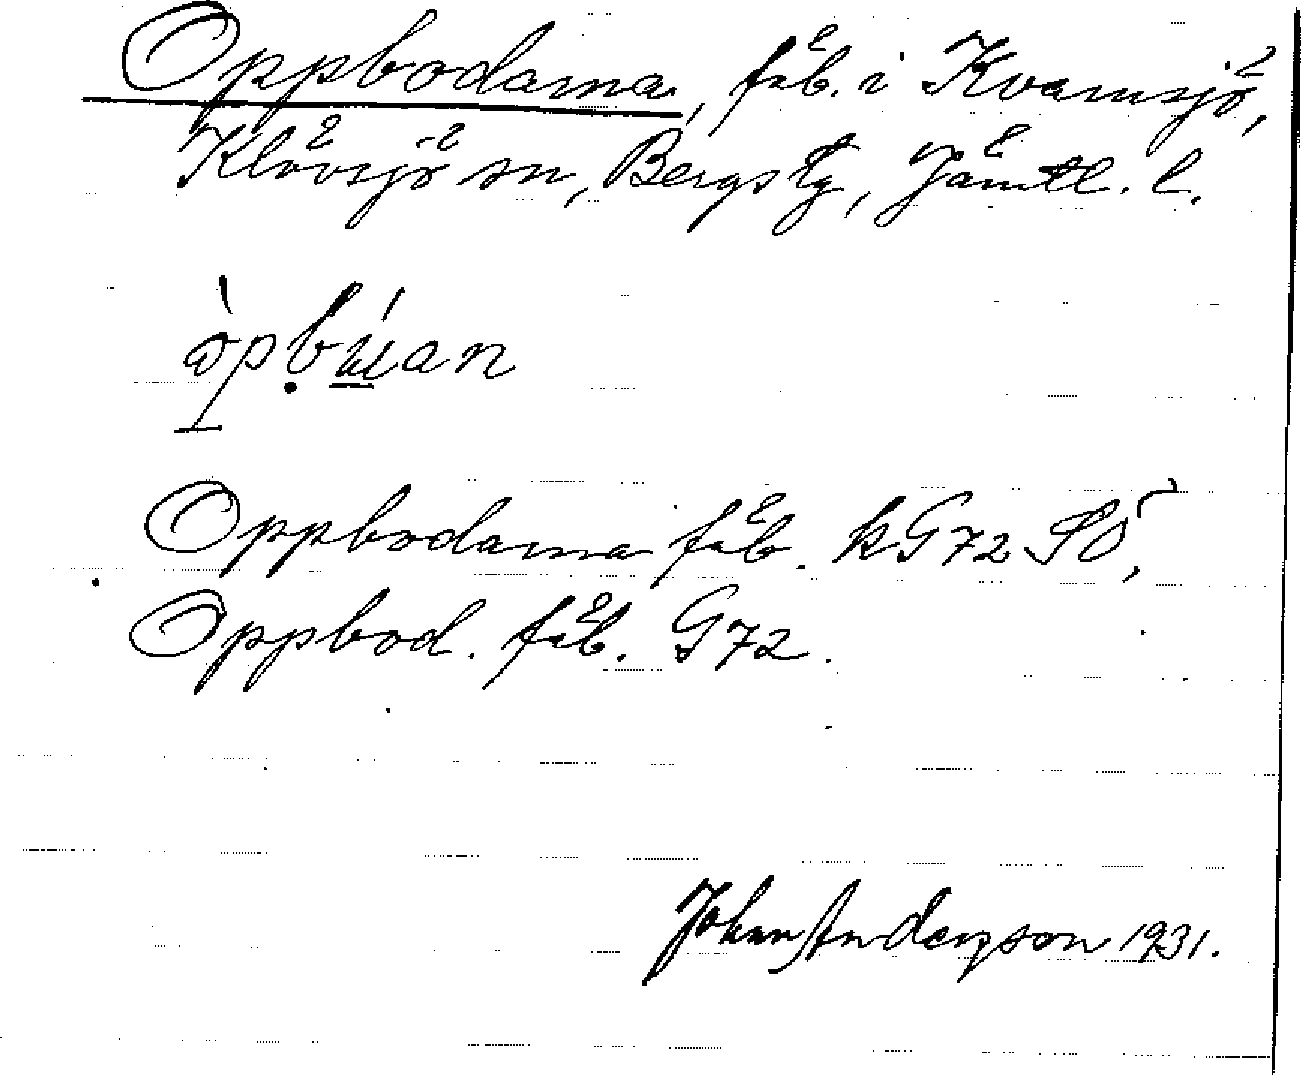 Oppbodarna, fäb. i Kvarnsjö,
Klövsjö sn, Bergs tg, Jämtl. l.
òpbúan
Oppbodarna fäb. kG72 SÖ,
Oppbod. fäb. G72.
Johan Anderson 1931.